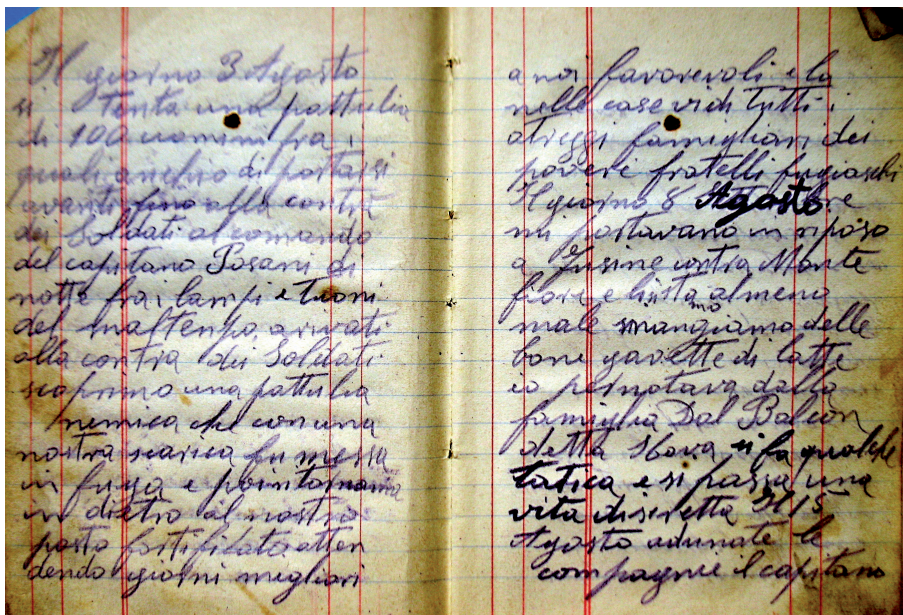 Il giorno 3 Agosto
si tenta una pattulia
di 100 uomini fra i
quali anchio di portarsi
avanti fino alla contra
dei Soldati al comando
del capitano Posani di
notte fra i lampi e tuoni
del maltempo arivati
alla contra dei Soldati
scoprimo una pattulia
nemica che con una
nostra scarica fu messa
in fuga e poi
in dietro al nostro
posto fortificato atten
dendo giorni megliori
a noi favorevoli e la
nelle case vidi tutti i
atreggi famigliari dei
poveri fratelli fugiaschi
Il giorno 8 Agosto
mi portavano in riposo
a Fusine contra Monte
fiore e li sta almeno
male mangiamo delle
bone gavette di latte
io pernotava dalla
famiglia Dal Balcon
detta Slova si fa qualche
tatica e si passa una
vita discretta Il 15
Agosto adunate le
compagnie il capitano